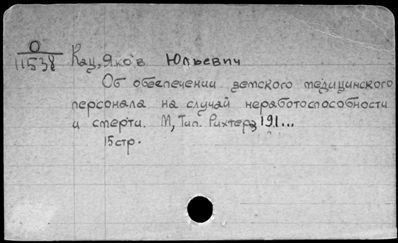 О
11538
Кац, Яков Юльевич
Об обеспечении земского медицинского
персонала на случай неработоспособности
и смерти. М, Тип. Рихтера, 191...
15 стр.